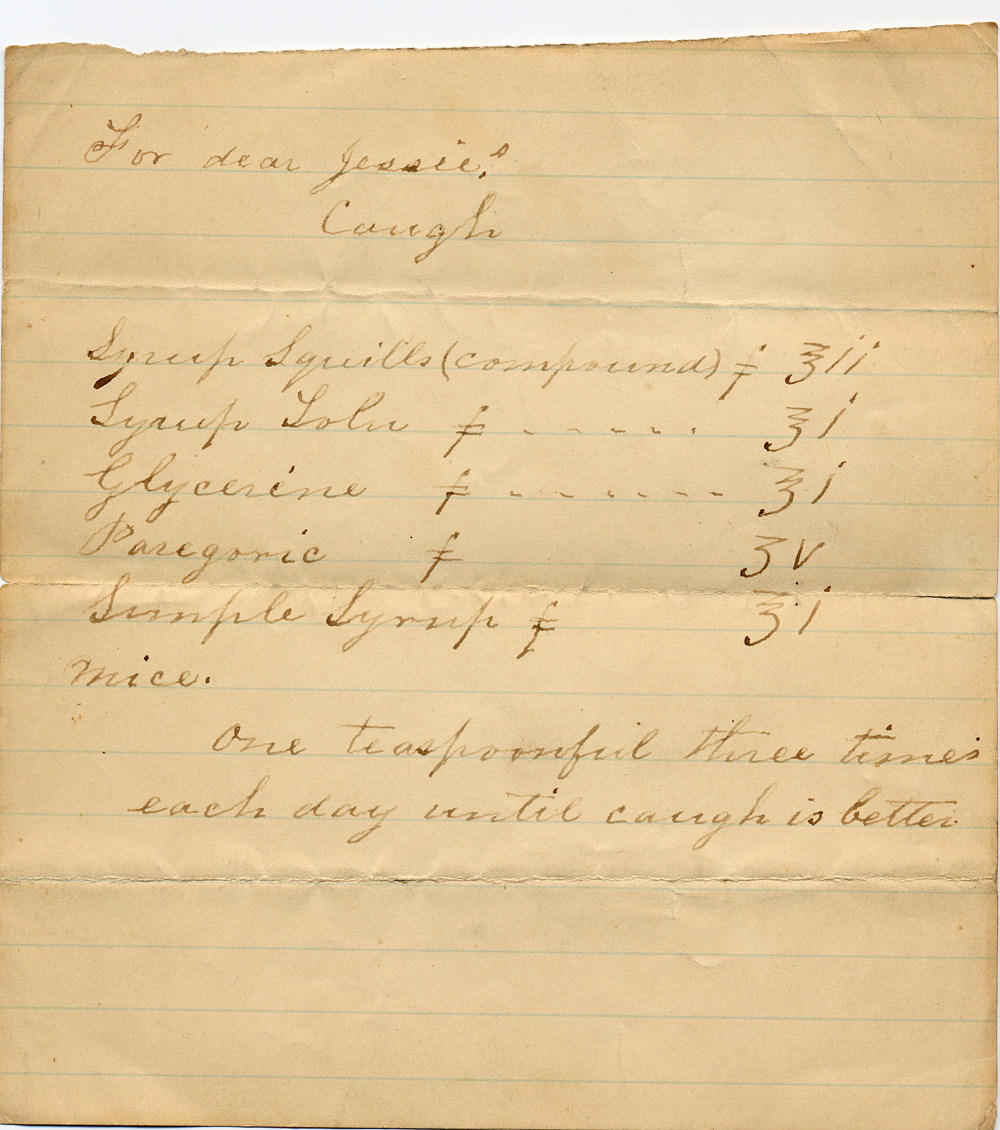 For dear Jessie's
Cough
Syrup Squills (compound) f ʒii
Syrup Tolu f - - - - - - ʒi
Glycerine f - - - - - - - ʒi
Paregoric f ʒv
Simple Syrup f ʒi
Mice.
One teaspoonful three times
each day until caugh is better